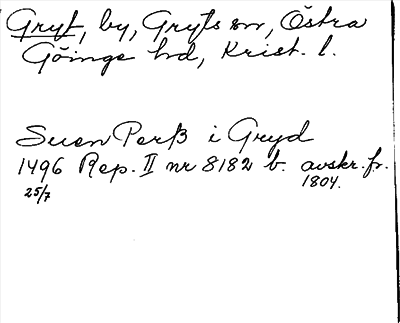 Gryt, by, Gryts sn, Östra
Göinge hd, Krist. l.
Suen Perß i Gryd
1496 Rep. II nr 8182 b. avskr. fr.
25/7 1804.